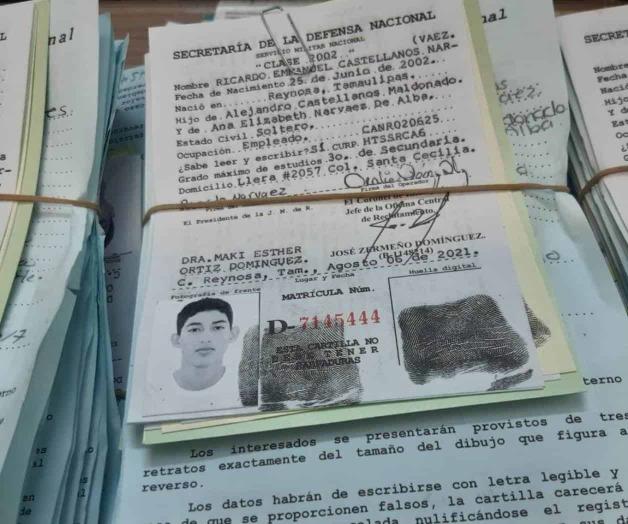 SECRETARÍA DE LA DEFENSA NACIONAL
SERVICIO MILITAR NACIONAL
"CLASE 2002" (VAEZ.
Nombre RICARDO EMMANUEL CASTELLANOS NAR-
Fecha de Nacimiento 25 de Junio de 2002.
Nació en Reynosa, Tamaulipas.
Hijo de Alejandro Castellanos Maldonado.
Y de Ana Elizabeth Narvaez De Alba.
Estado Civil Soltero.
Ocupación Empleado. CANR020625
¿Sabe leer y escribir? Sí CURP. HTSSRCA6
Grado máximo de estudios 3o. de Secundaria.
Domicilio Llera #2057 Col. Santa Cecilia.
Narvaez
Firma del Operador
El Presidente de la J. M. de R.
El Coronel
Jefe de la Oficina Central
de Reclutamiento.
DRA. MAKI ESTHER
ORTIZ DOMINGUEZ.
JOSÉ ZERMEÑO DOMÍNGUEZ.
C. Reynosa, Tam., Agosto 06 de 2021.
Lugar y Fecha
Fotografía de frente
Huella digital
MATRÍCULA Núm.
D-7145444
ESTA CARTILLA NO
DEBE TENER
RASPADURAS
Los interesados se presentarán provistos de tres
retratos exactamente del tamaño del dibujo que figura a
reverso.
Los datos habrán de escribirse con letra legible y
de que se proporcionen falsos, la cartilla carecerá
nulificándose el regist